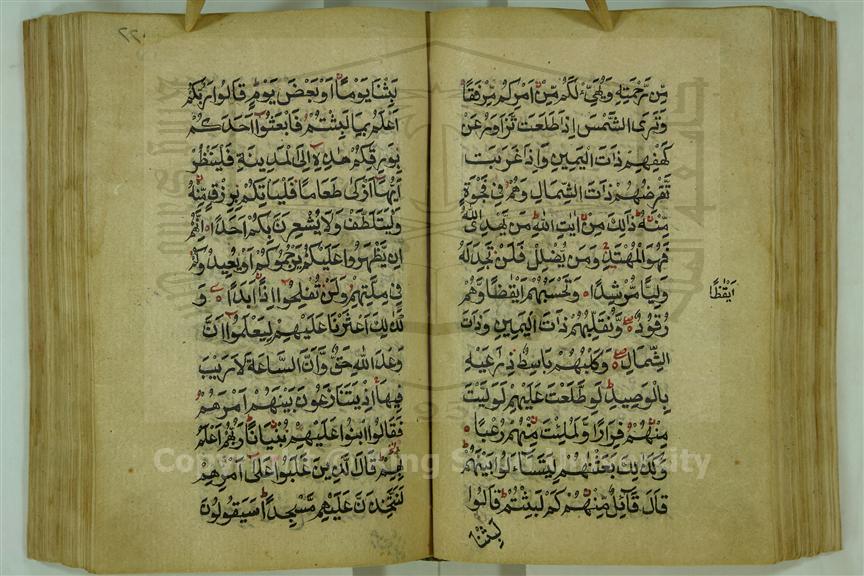 مِّن رَّحْمَتِهٖ وَيُهَيِّئْ لَكُم مِّنْ اَمْرِكُم مِّرْفَقًا
وَتَرَى الشَّمْسَ اِذَا طَلَعَت تَّزَاوَرُ عَنْ
كَهْفِهِمْ ذَاتَ الْيَمِيْنِ وَاِذَا غَرَبَت
تَّقْرِضُهُمْ ذَاتَ الشِّمَالِ وَهُمْ فِي فَجْوَةٍ
مِّنْهُ ذٰلِكَ مِنْ اٰيٰتِ اللّٰهِ مَن يَّهْدِي اللّٰهُ
فَهُوَ الْمُهْتَدِ وَمَن يُّضْلِلْ فَلَنْ تَجِدَ لَهُ
وَلِيًّا مُّرْشِدًا وَتَحْسَبُهُمْ اَيْقَظًا وَّهُمْ
اَيْقَاظًا
رُقُوْدٌ وَّنُقَلِّبُهُمْ ذَاتَ الْيَمِيْنِ وَذَاتَ
الشِّمَالِ وَكَلْبُهُمْ بَاسِطٌ ذِرَاعَيْهِ
بِالْوَصِيْدِ لَوِ طَّلَعْتَ عَلَيْهِمْ لَوَلَّيْتَ
مِنْهُمْ فِرَارًا وَّلَمُلِئْتَ مِنْهُمْ رُعْبًا
وَكَذٰلِكَ بَعَثْنٰهُمْ لِيَتَسَاءَلُوْا بَيْنَهُمْ
قَالَ قَآئِلٌ مِّنْهُمْ كَمْ لَبِثْتُمْ قَالُوْا
لَبِثْنَا
٢٢٠
لَبِثْنَا يَوْمًا اَوْ بَعْضَ يَوْمٍ قَالُوْا رَبُّكُمْ
اَعْلَمُ بِمَا لَبِثْتُمْ فَابْعَثُوْا اَحَدَكُمْ
بِوَرِقِكُمْ هٰذِهٖ اِلَى الْمَدِيْنَةِ فَلْيَنْظُرْ
اَيُّهَا اَزْكٰى طَعَامًا فَلْيَاْتِكُمْ بِرِزْقٍ مِّنْهُ
وَلْيَتَلَطَّفْ وَلَا يُشْعِرَنَّ بِكُمْ اَحَدًا اِنَّهُمْ
اِنْ يَّظْهَرُوْا عَلَيْكُمْ يَرْجُمُوْكُمْ اَوْ يُعِيْدُوْكُمْ
فِيْ مِلَّتِهِمْ وَلَنْ تُفْلِحُوْا اِذًا اَبَدًا وَ
كَذٰلِكَ اَعْثَرْنَا عَلَيْهِمْ لِيَعْلَمُوْا اَنَّ
وَعْدَ اللّٰهِ حَقٌّ وَّاَنَّ السَّاعَةَ لَا رَيْبَ
فِيْهَا اِذْ يَتَنَازَعُوْنَ بَيْنَهُمْ اَمْرَهُمْ
فَقَالُوا ابْنُوْا عَلَيْهِمْ بُنْيَانًا رَبُّهُمْ اَعْلَمُ
بِهِمْ قَالَ الَّذِيْنَ غَلَبُوْا عَلٰى اَمْرِهِمْ
لَنَتَّخِذَنَّ عَلَيْهِمْ مَّسْجِدًا سَيَقُوْلُوْنَ